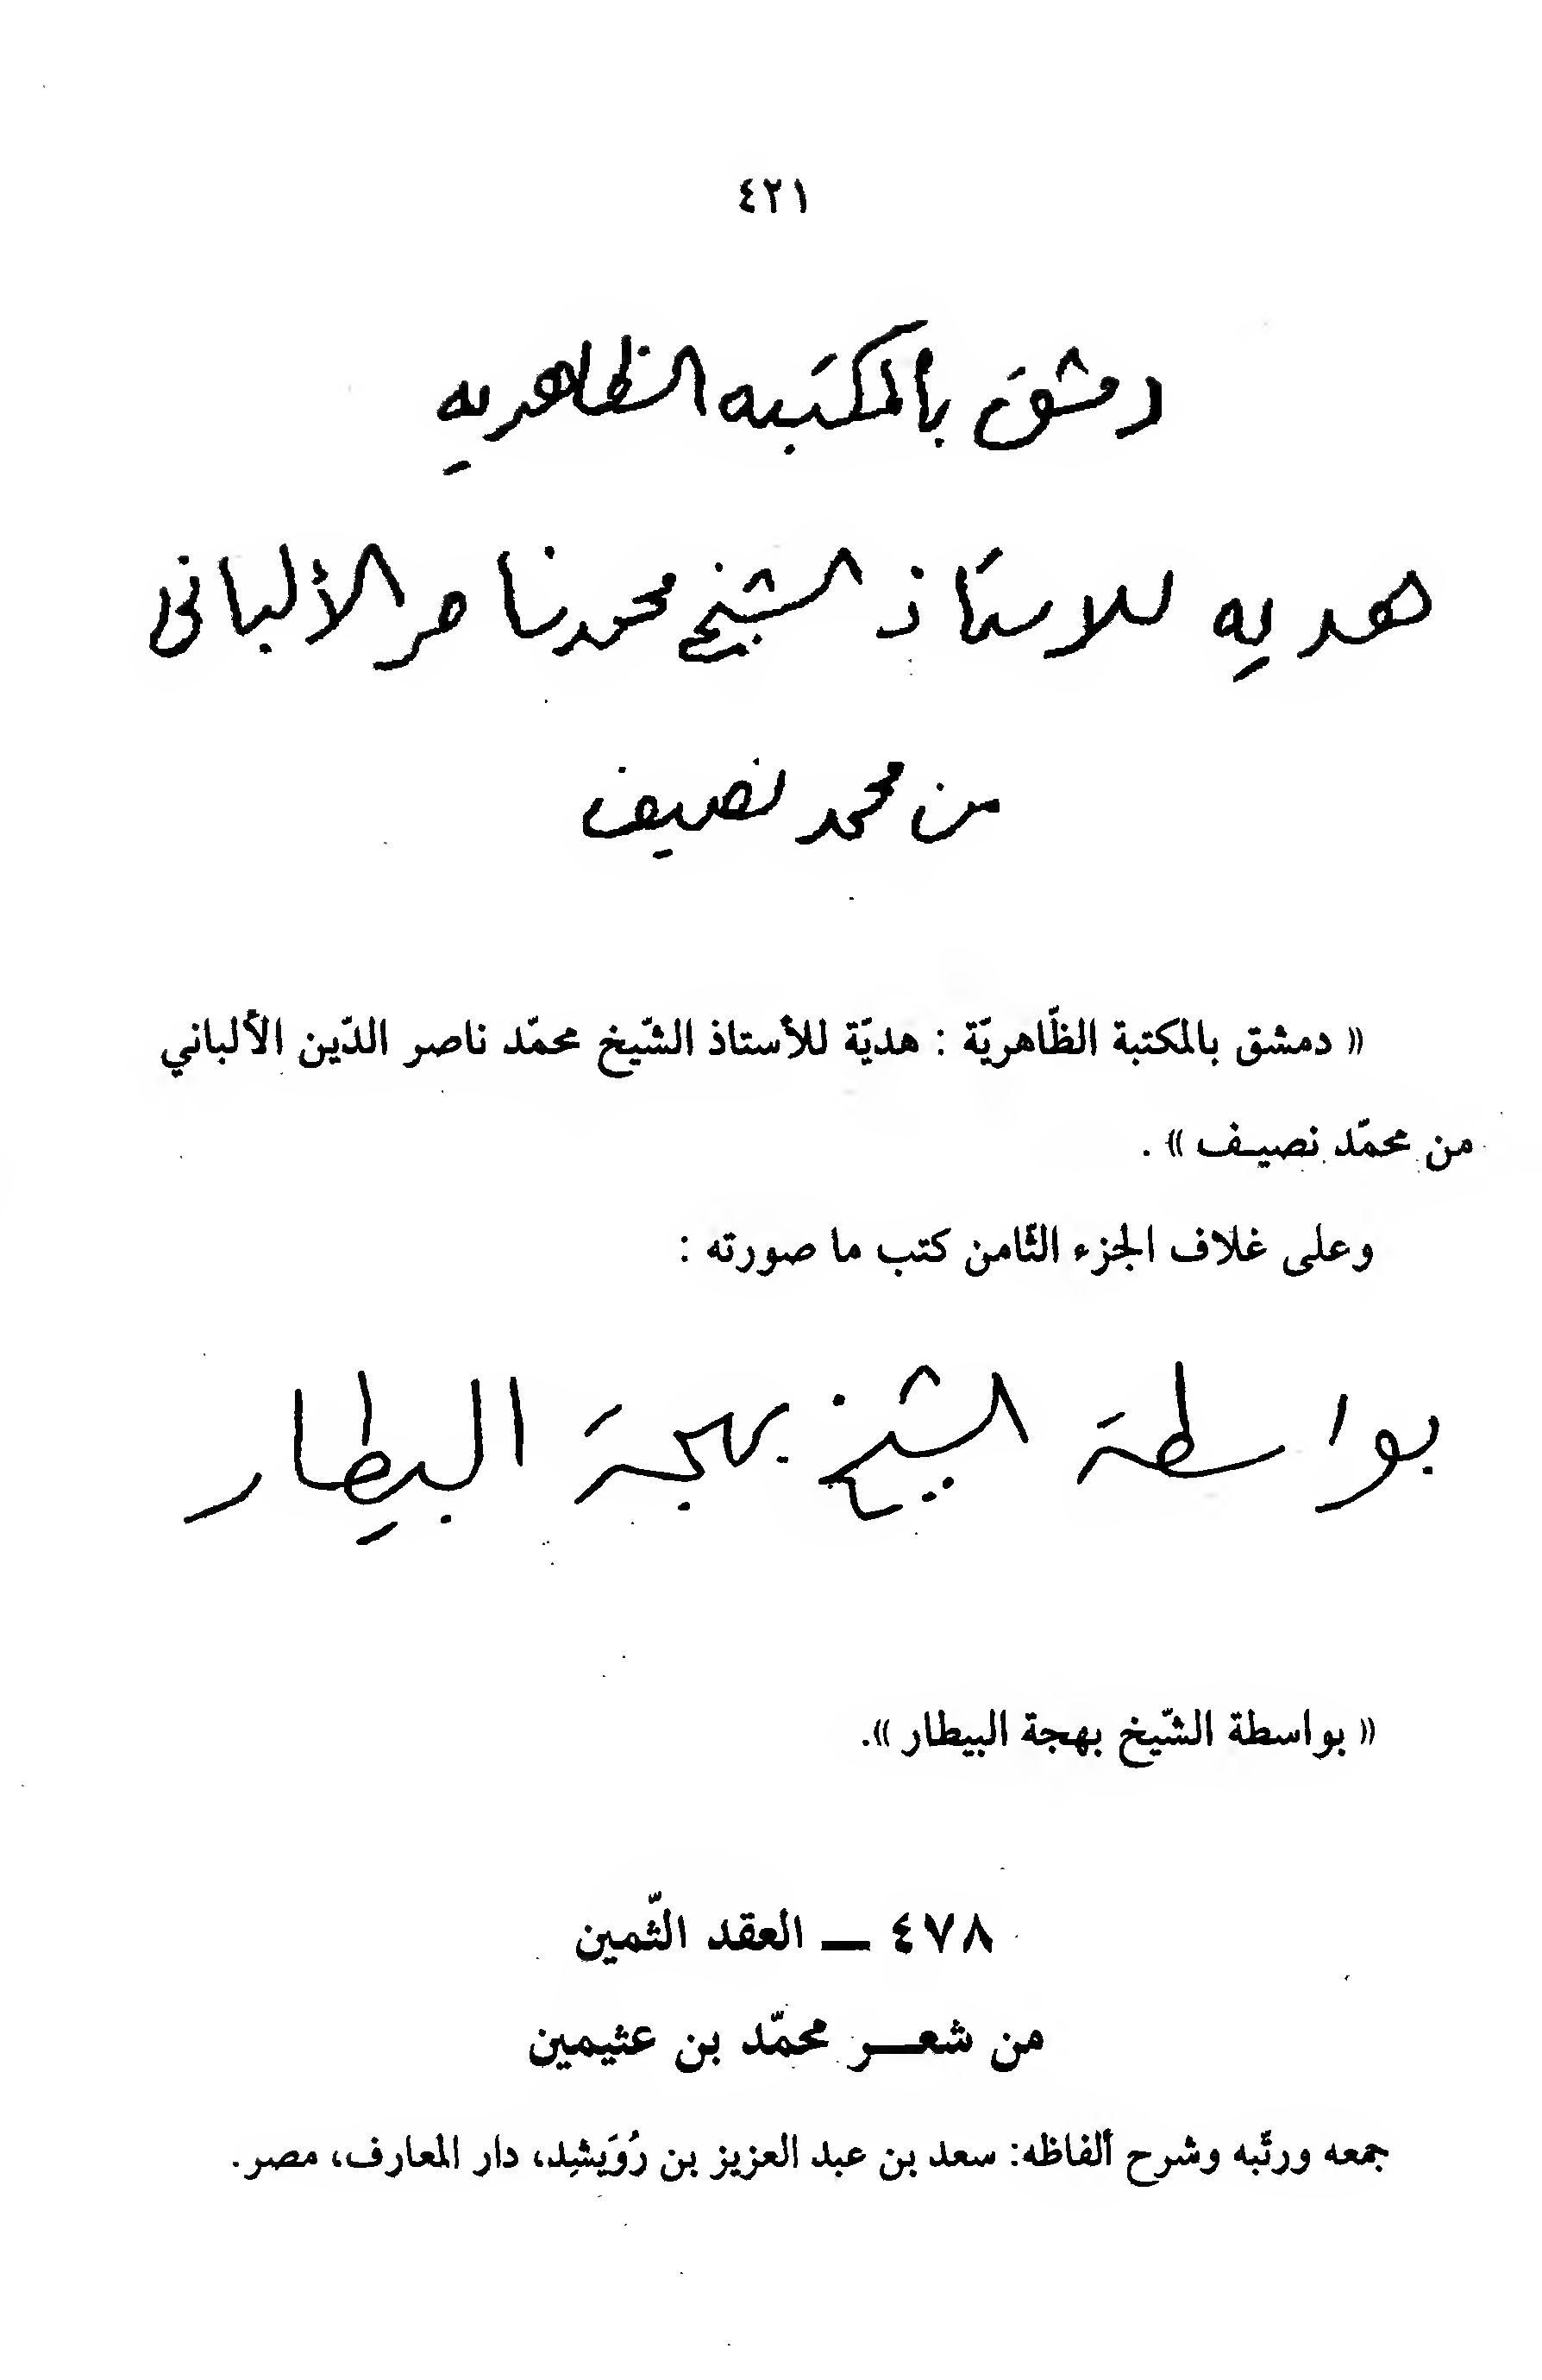 ٤٢١
دمشق بالمكتبه الظاهريه
هديه للاستاذ الشيخ محمد ناصر الألبانى
من محمد نصيف
« دمشق بالمكتبة الظّاهريّة : هديّة للأستاذ الشّيخ محمّد ناصر الدّين الألباني
من محمّد نصيـف » .
وعلى غلاف الجزء الثّامن كتب ما صورته :
بواسطة الشيخ بهجة البيطار
« بواسطة الشّيخ بهجة البيطار ».
٤٧٨ ــ العقد الثّمين
من شعـــر محمّد بن عثيمين
جمعه ورتّبه وشرح ألفاظه: سعد بن عبد العزيز بن رُوَيشِد، دار المعارف، مصر.